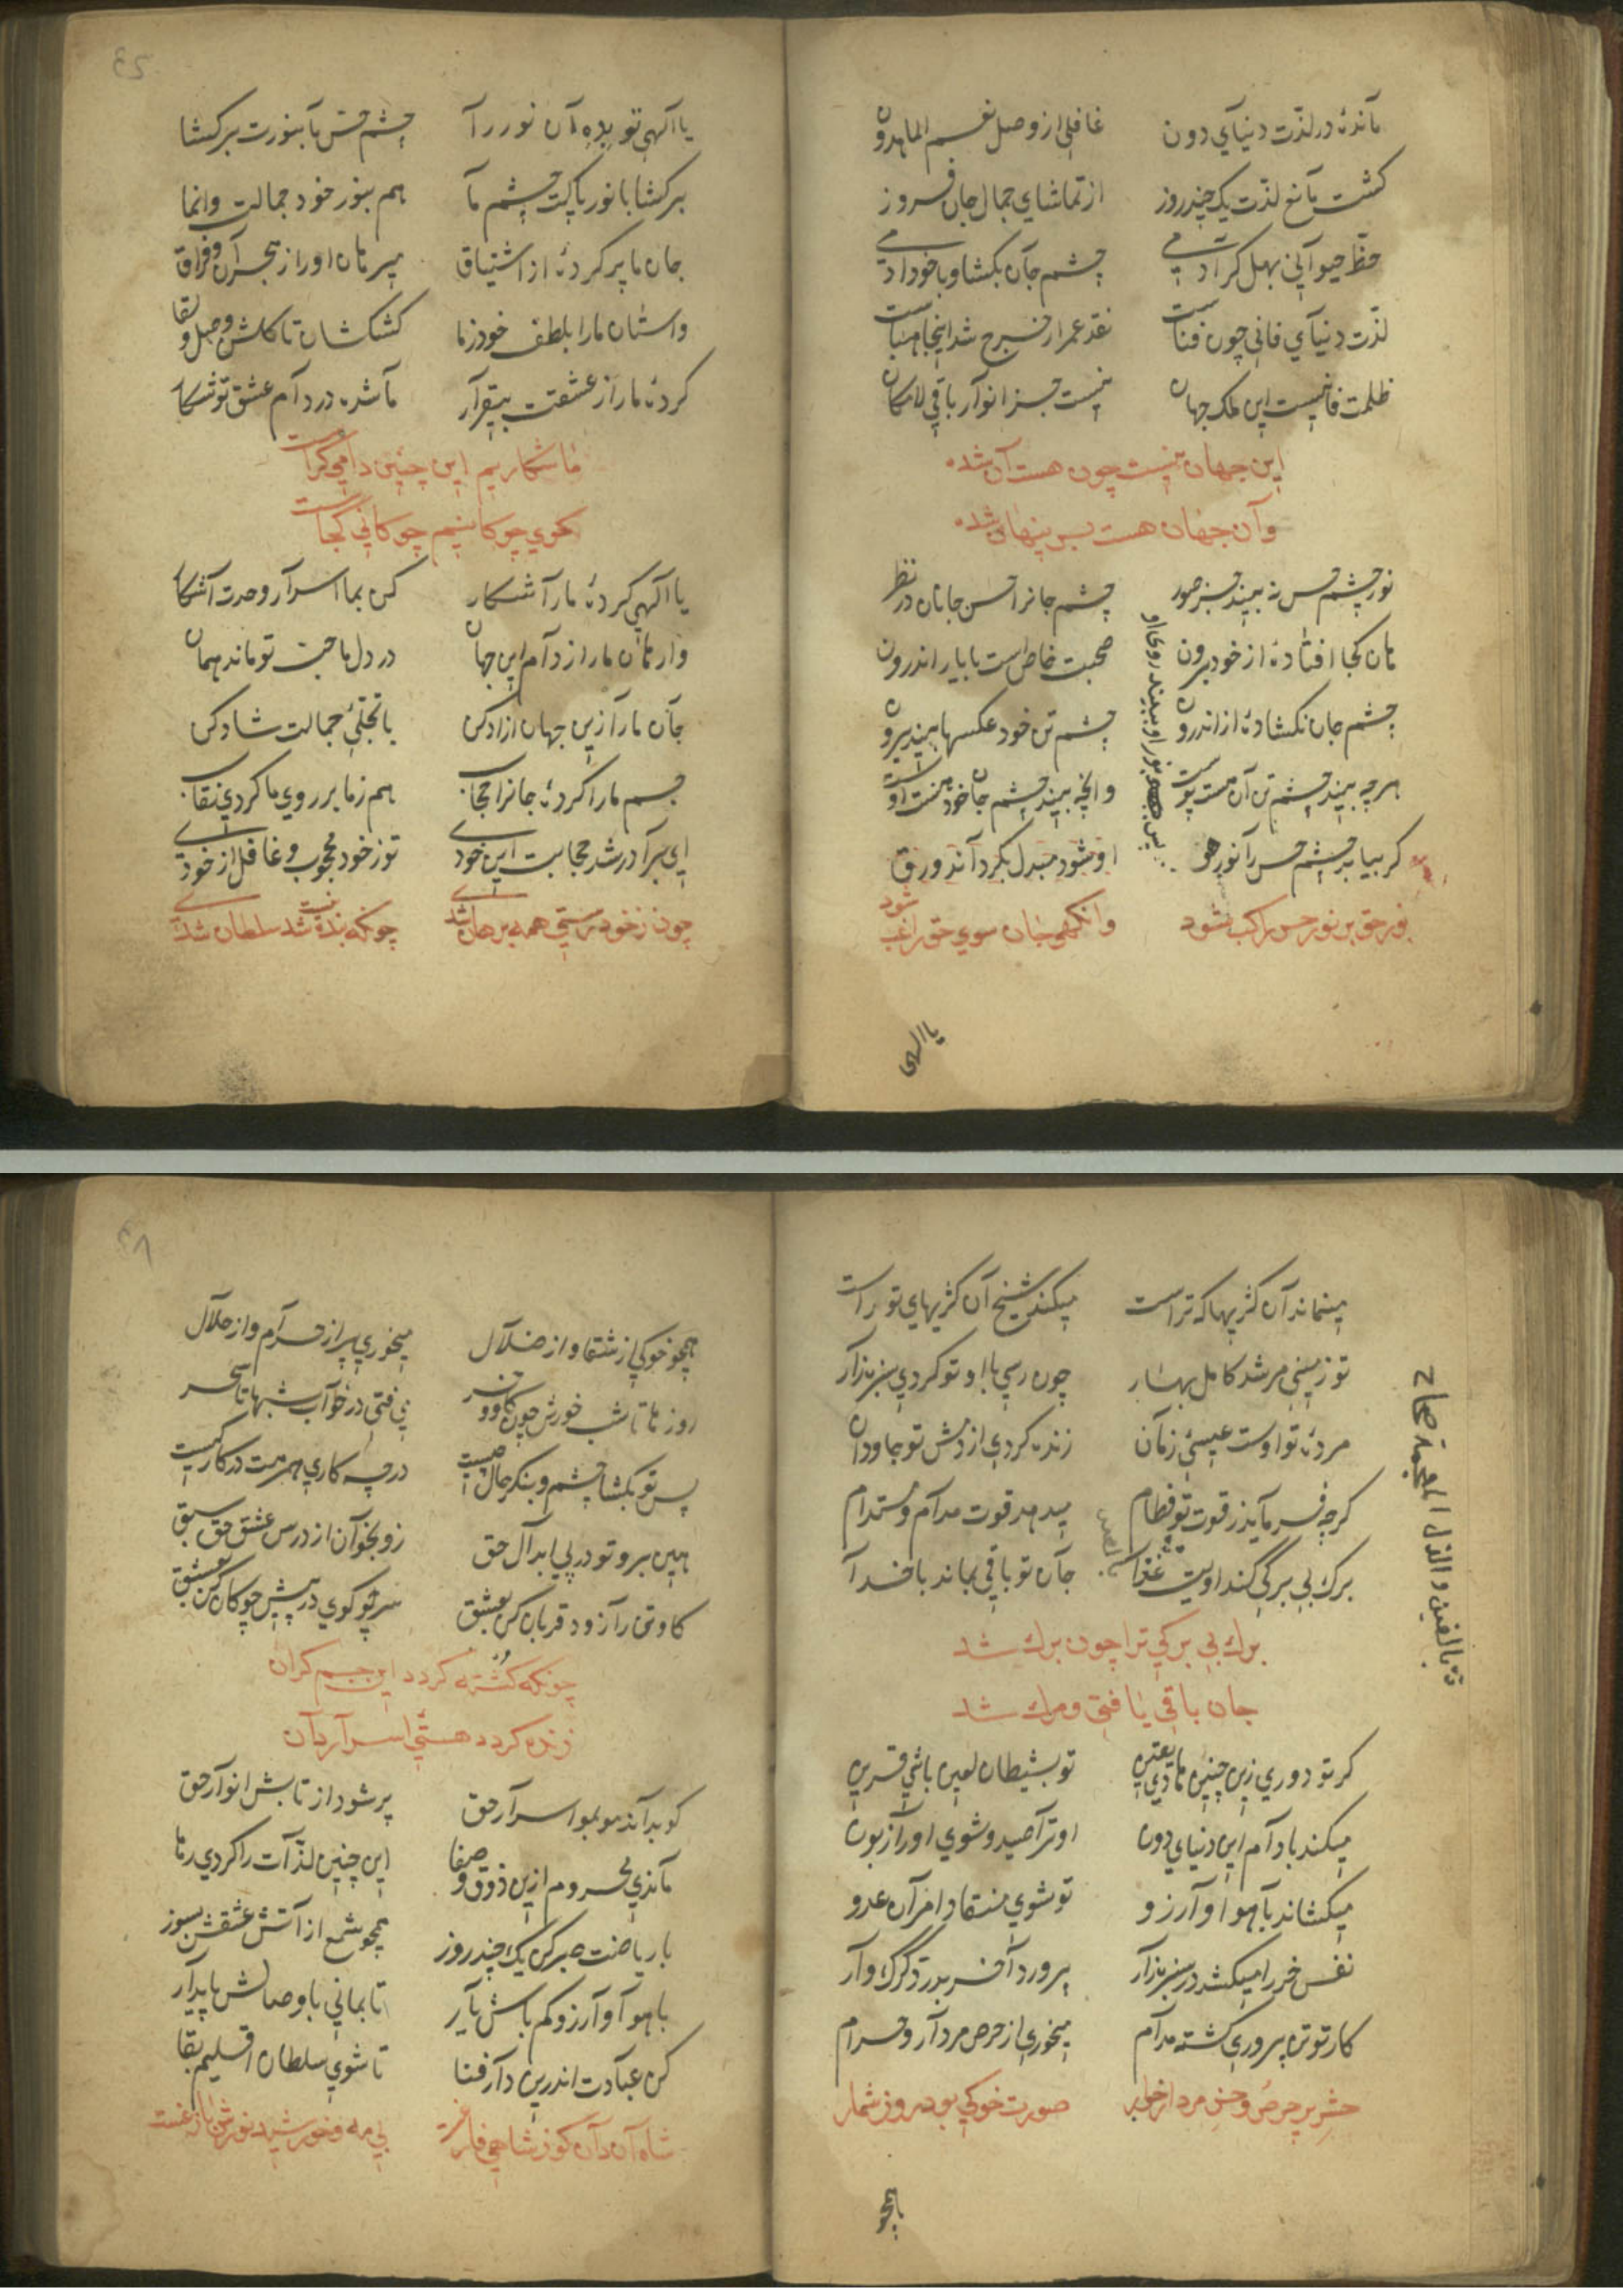 ماندهٔ در لذّت دنیای دون غافلی از وصل نعم الماهدون
کشت مانع لذّت یک چند روز از تماشای جمال جان فروز
حظّ حیوانی بهل کر آدمی چشم جان بکشا و باخود آدمی
لذّت دنیای فانی چون فناست نقد عمر از خرج شد اینجا
ظلمت فانیست این ملک جهان نیست جز انوار باقی لامکان
این جهان نیست چون هست آن شده
وآن جهان هست بس پنهان شده
نور چشم حس نه بیند جز صور چشم جانرا حسن جانان در نظر
هان کجا افتادهٔ از خود برون صحبت خاص است با یار اندرون
چشم جان نکشادهٔ از اندرون چشم تن خود عکسها بیند برون
هرچه بیند چشم تن آن هست پوست وانچه بیند چشم جان خود
پس بنور او ببیند روی او
کر بیابد چشم حس را نور هو او شود مبدل بکرداند ورق
نور حق بر نور حس راکب شود وانکهی جان سوی حق راغب شود
یا الهی
یا الهی تو بده آن نور را چشم حس تا بنورت برکشا
برکشا با نور پاکت چشم ما هم بنور خود جمالت وانما
جان ما پر کردهٔ از اشتیاق پس رهان او را ز هجران و فراق
واستان ما را بلطف خود ز ما کشکشان تا کلشن وصل و لقا
کردهٔ ما را ز عشقت بیقرار ما شده در دام عشق تو شکار
ما شکاریم این چنین دامی کراست
کوی چوکانیم چوکانی کجاست
یا الهی کردهٔ ما را شکار کن بما اسرار وحدت آشکار
وارهان ما را ز دام این جهان در دل ما حبّ تو ماند همان
جان ما را زین جهان ازاد کن با تجلّیّ جمالت شاد کن
جسم ما را کردهٔ جانرا حجاب هم ز ما بر روی ما کردی نقاب
ای برادر شد حجابت این خودی تو ز خود محجوب و غافل از خودی
چون ز خود رستی همه برهان شدی چونکه بنده نیست شد سلطان شدی
مینماند آن کژیها که تراست میکند شیخ آن کژیهای تو راست
تو زمینی مرشد کامل بهار چون رسی با او تو کردی سبزه زار
مردهٔ تو اوست عیسیّ زمان زنده کردی از دمش تو جاودان
کرچه فرماید ز قوت تو فطام میدهد قوت مدام و مستدام
برک بی برکی کند اویت غذا جان تو باقی بماند با خدا
برک بی برکی ترا چون برک شد
جان باقی یافتی و مرک شد
کر تو دوری زین چنین هادی یقین تو بشیطان لعین باشی قرین
میکند با دام این دنیای دون او ترا صید و شوی او را زبون
میکشاند با هوا و آرزو تو شوی منقاد امر آن عدو
نفس خر را میکشد در سبزه زار پرورد آخر بدرّد کرک وار
کار تو تن پروری کشته مدام میخوری از حرص مردار و حرام
حشر پر حرص و خس مردار خوار صورت خوکی بود روز شمار
همچو
همچو خوکی از شقا و از ضلال میخوری پر از حرام و از حلال
روزها تا شب خورش چون کاو و خر می فتی در خواب شبها تا سحر
پس تو بکشا چشم و بنکر حال چیست در چه کاری بهرهت در کار کیست
هین برو تو در پی ابدال حق زو بخوان از درس عشق حق سبق
کاو تن را زود قربان کن بعشق سر چو کوی در پیش چوکان کن بعشق
چونکه کشته کردد این جسم کران
زنده کردد هستئ اسراردان
کو بداند موبمو اسرار حق پر شود از تابش انوار حق
ماندی محروم ازین ذوق و صفا این چنین لذّات را کردی رها
با ریاضت صبر کن یک چند روز همچو شمع از آتش عشقش بسوز
با هوا و آرزو کم باش یار تا بمانی با وصالش پایدار
کن عبادت اندرین دار فنا تا شوی سلطان اقلیم بقا
شاه آن دان کو ز شاهی فارغست بی مه و خورشید نورش بازغست